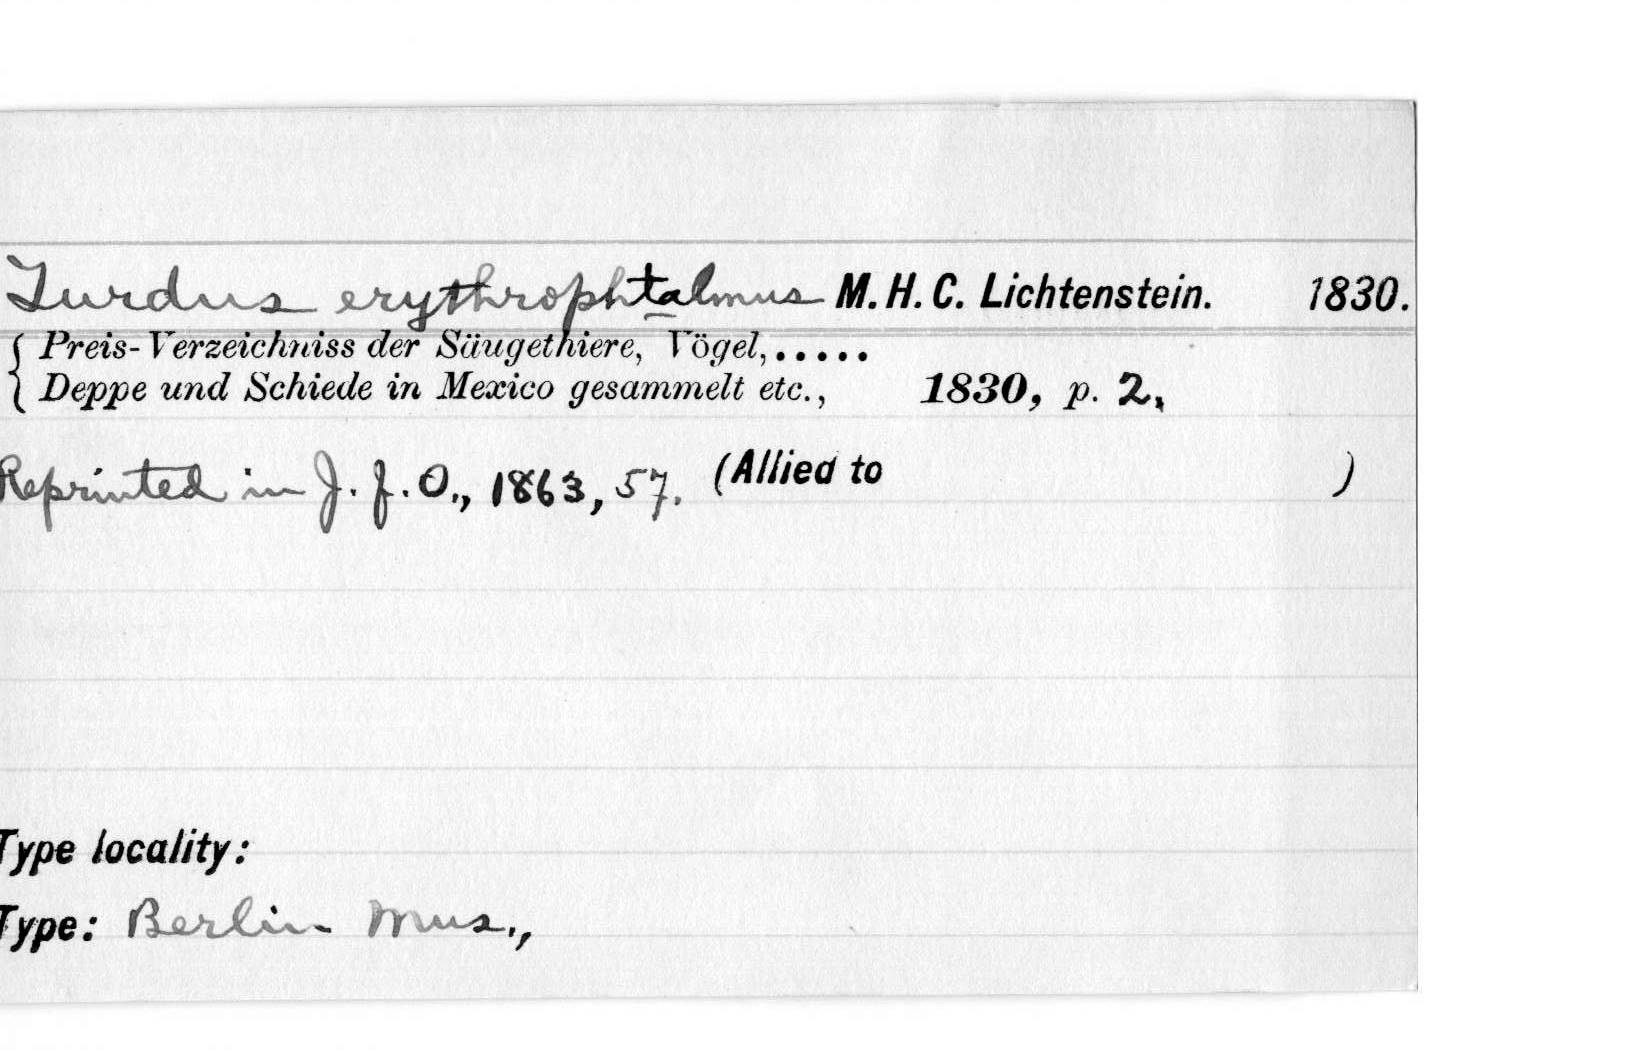 Turdus erythrophtalmus M. H. C. Lichtenstein. 1830.
Preis-Verzeichniss der Säugethiere, Vögel,.....
Deppe und Schiede in Mexico gesammelt etc., 1830, p. 2,
Reprinted in J. f. O., 1863, 57. (Allied to )
Type locality:
Type: Berlin Mus.,